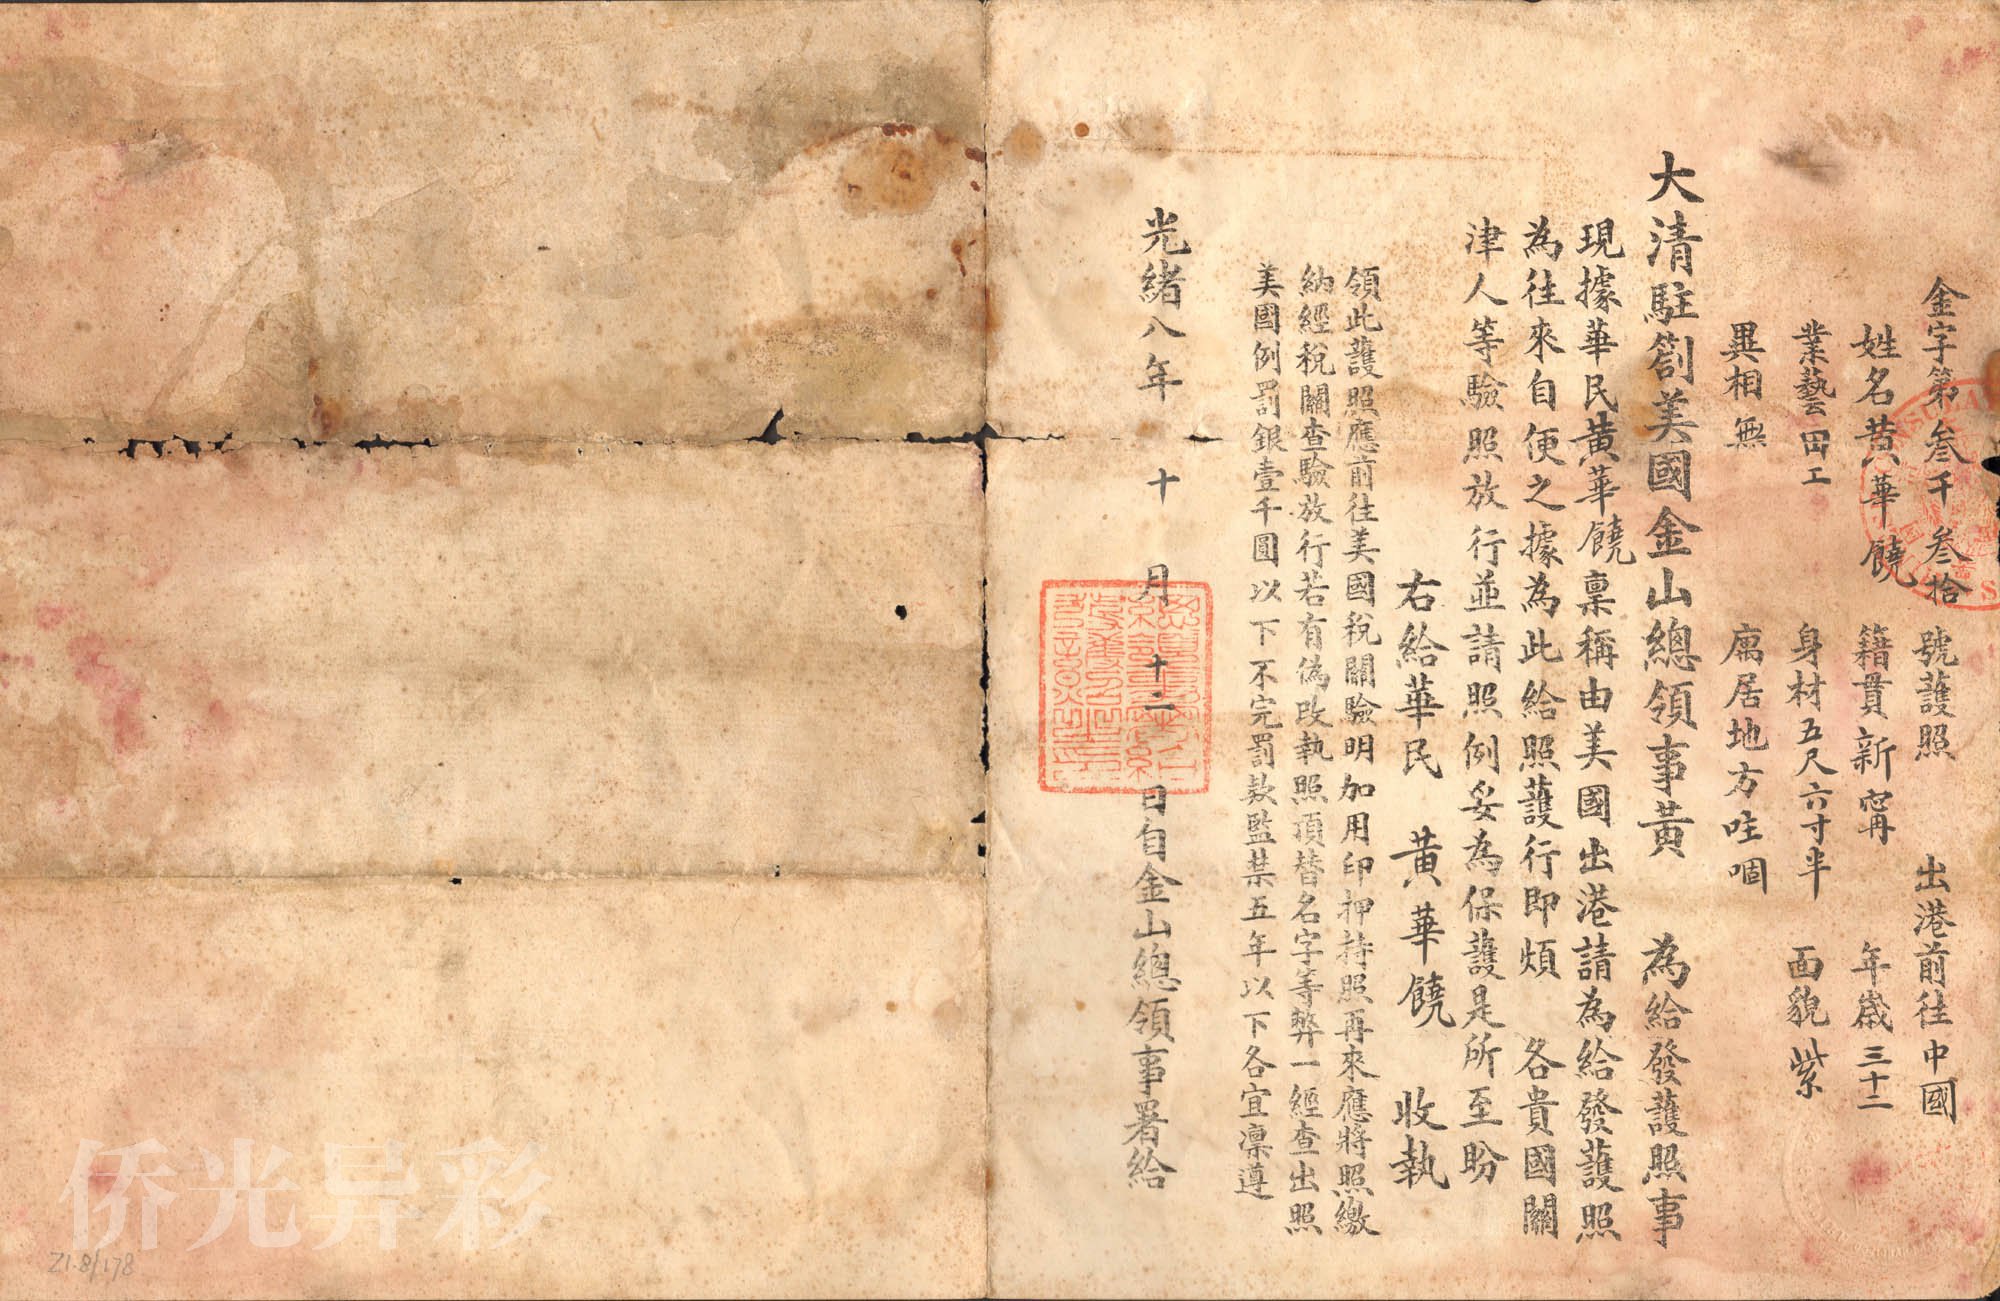 金字第叁千叁拾號護照　出港前往中國
姓名黄華饒　籍貫新甯　年歲三十二
業藝田工　身材五尺六寸半　面貌紫
異相無　寓居地方咗㗽
大清駐劄美國金山總領事黄　為給發護照事
現據華民黄華饒稟稱由美國出港請為給發護照
為往來自便之據為此給照護行即煩　各貴國關
津人等驗照放行並請照例妥為保護是所至盼
右給華民　黄華饒　收執
領此護照應前往美國稅關驗明加用印押持照再來應將照繳
納經稅關查驗放行若有偽改執照頂替名字等弊一經查出照
美國例罰銀壹千圓以下不完罰款監禁五年以下各宜凛遵
光緒八年　十　月　十二　日自金山總領事署給
侨光异彩
Z1.8/178